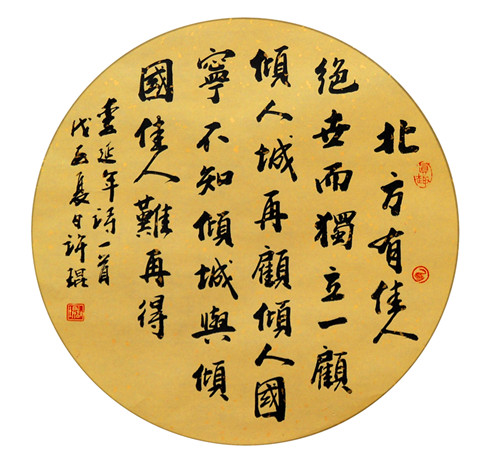 北方有佳人
絕世而獨立一顧
傾人城再顧傾人國
寧不知傾城與傾
國佳人難再得
李延年詩一首
戊夏日許琨